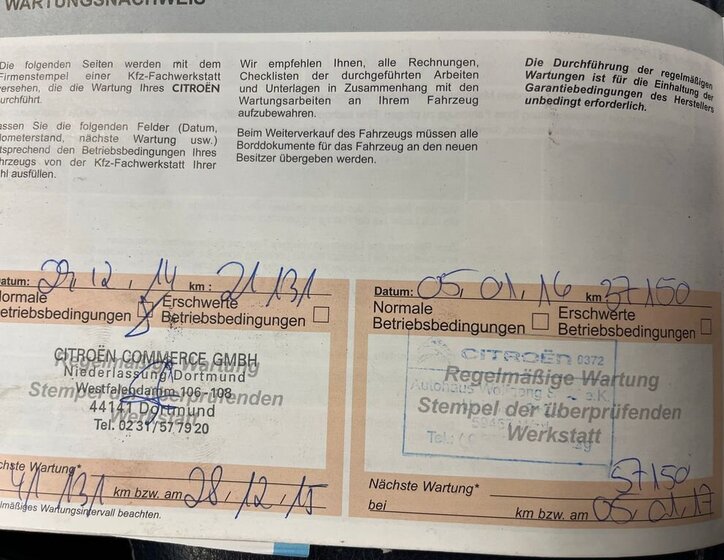 WARTUNGSNACHWEIS
Die folgenden Seiten werden mit dem
Firmenstempel einer Kfz-Fachwerkstatt
versehen, die die Wartung Ihres CITROËN
durchführt.
assen Sie die folgenden Felder (Datum,
lometerstand, nächste Wartung usw.)
tsprechend den Betriebsbedingungen Ihres
hrzeugs von der Kfz-Fachwerkstatt Ihrer
hl ausfüllen.
Wir empfehlen Ihnen, alle Rechnungen,
Checklisten der durchgeführten Arbeiten
und Unterlagen in Zusammenhang mit den
Wartungsarbeiten an Ihrem Fahrzeug
aufzubewahren.
Beim Weiterverkauf des Fahrzeugs müssen alle
Borddokumente für das Fahrzeug an den neuen
Besitzer übergeben werden.
Die Durchführung der regelmäßigen
Wartungen ist für die Einhaltung der
Garantiebedingungen des Herstellers
unbedingt erforderlich.
atum: 29, 12, 14 km: 21 131
Normale
etriebsbedingungen
Erschwerte
Betriebsbedingungen
CITROËN COMMERCE GMBH
Niederlassung Dortmund
Westfalendamm 106 - 108
44141 Dortmund
Tel. 02 31/57 79 20
Regelmäßige Wartung
Stempel der überprüfenden
Werkstatt
chste Wartung*
41 131 km bzw. am 28, 12, 15
elmäßiges Wartungsintervall beachten.
Datum: 05, 01, 16 km 37150
Normale
Betriebsbedingungen
Erschwerte
Betriebsbedingungen
CITROËN 0372
Autohaus e.K.
Tel.:
Regelmäßige Wartung
Stempel der überprüfenden
Werkstatt
Nächste Wartung* 57150
bei km bzw. am 05, 01, 17